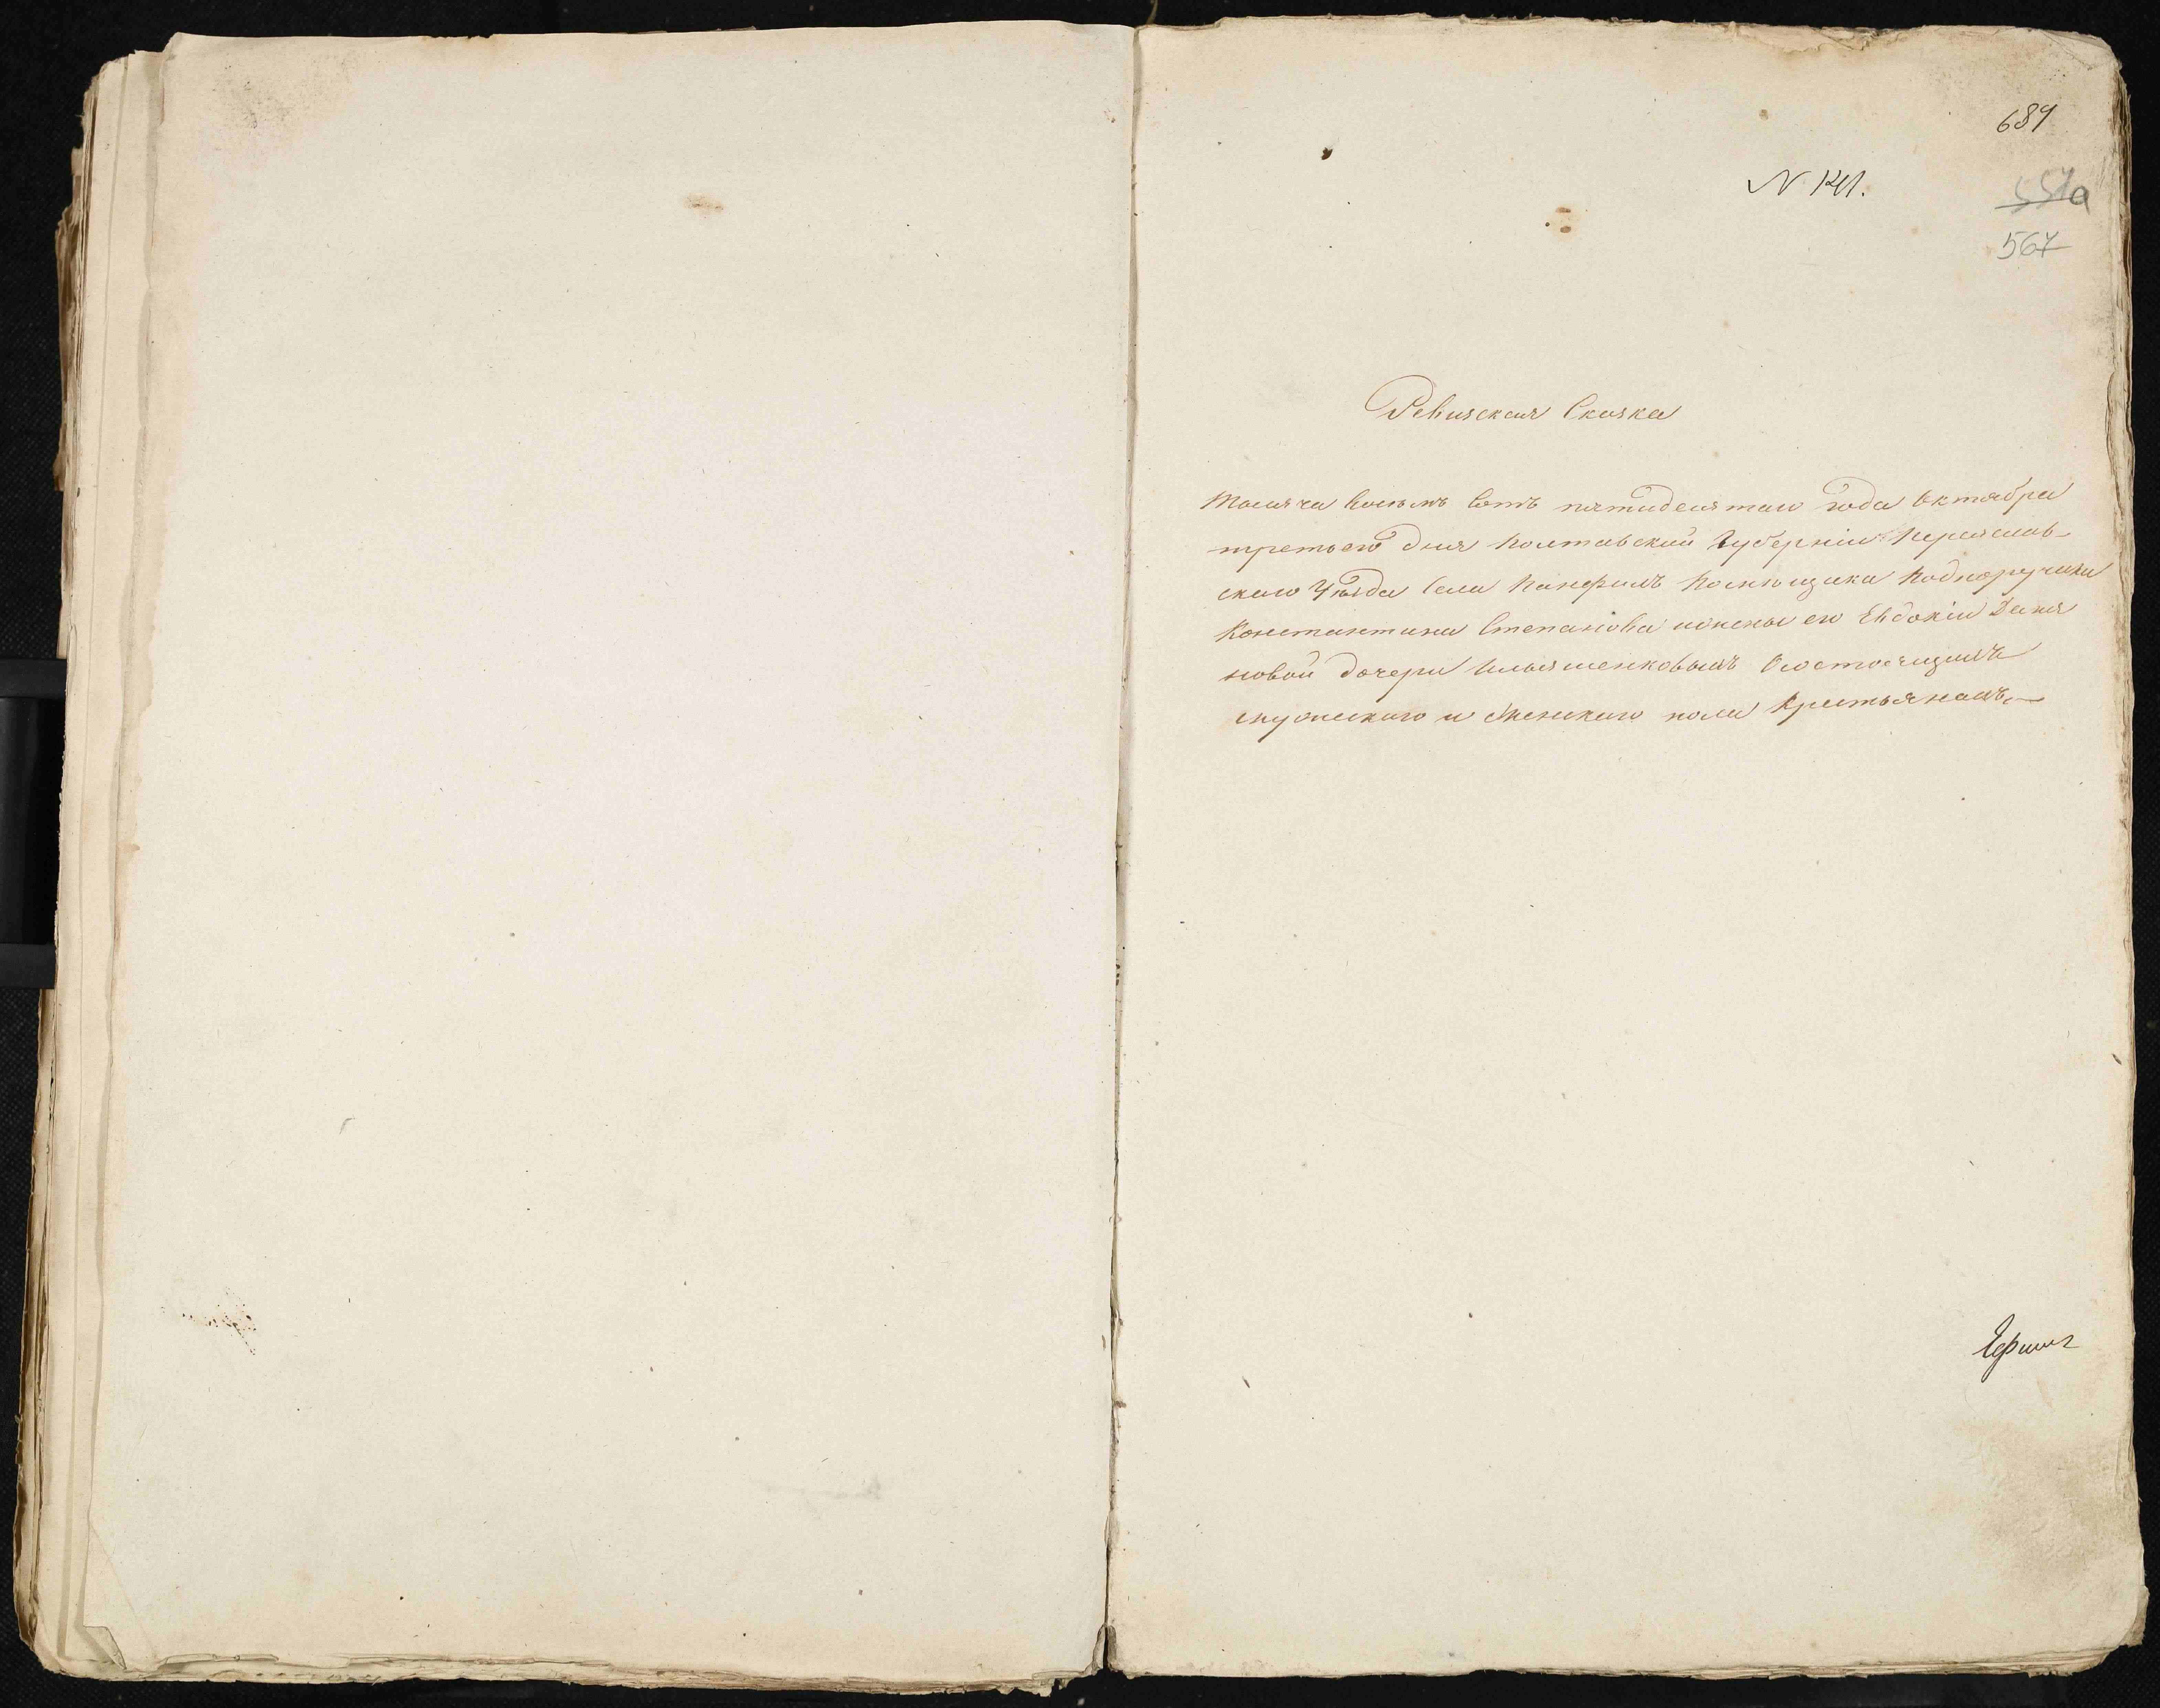 689
N 1241.
557а
567
Ревизская Сказка
Тысяча восемъ сотъ пятидесятаго года Октября
третьего дня Полтавской Губерніи Переяслав-
скаго Уѣзда села Панфилъ Помѣщика Подпоручика
Константина Степанова ижены его Евдокіи Демья
новой дочери Ильяшенковымъ О состоящихъ
мужескаго и женскаго пола крестьянахъ.